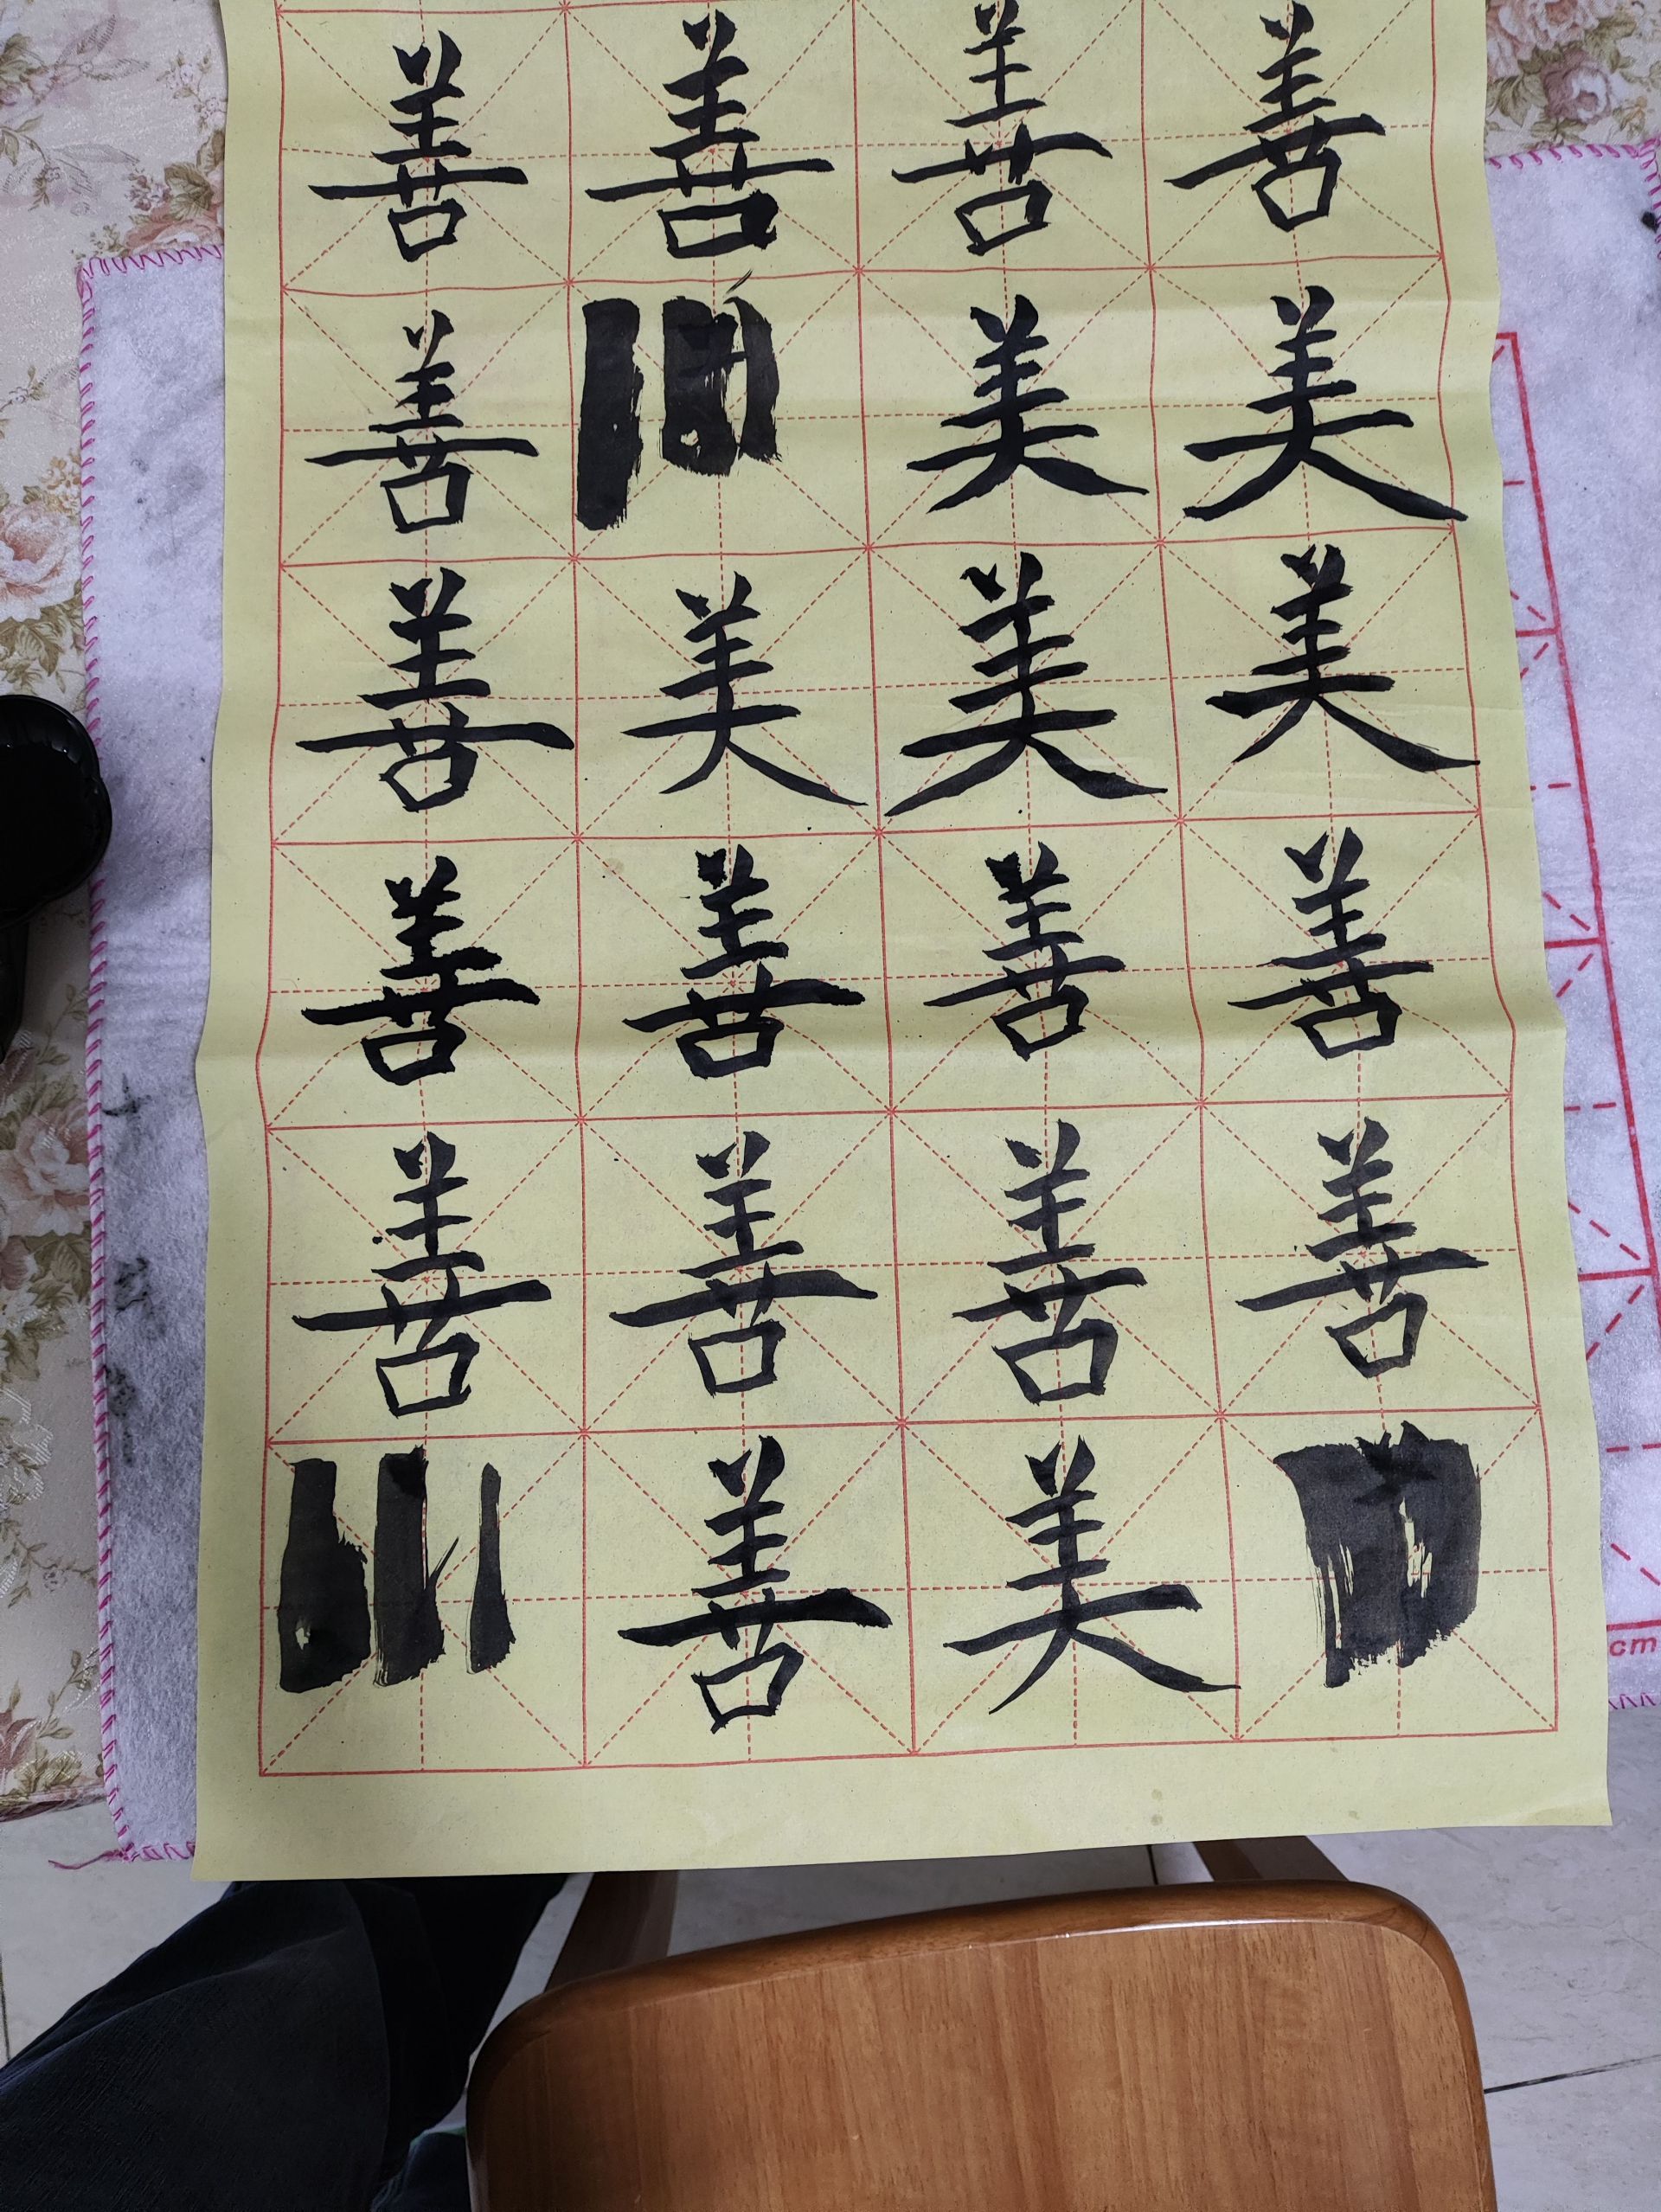 善 善 善 善
善 美 美
善 美 美 美
善 善 善 善
善 善 善 善
善 美
cm